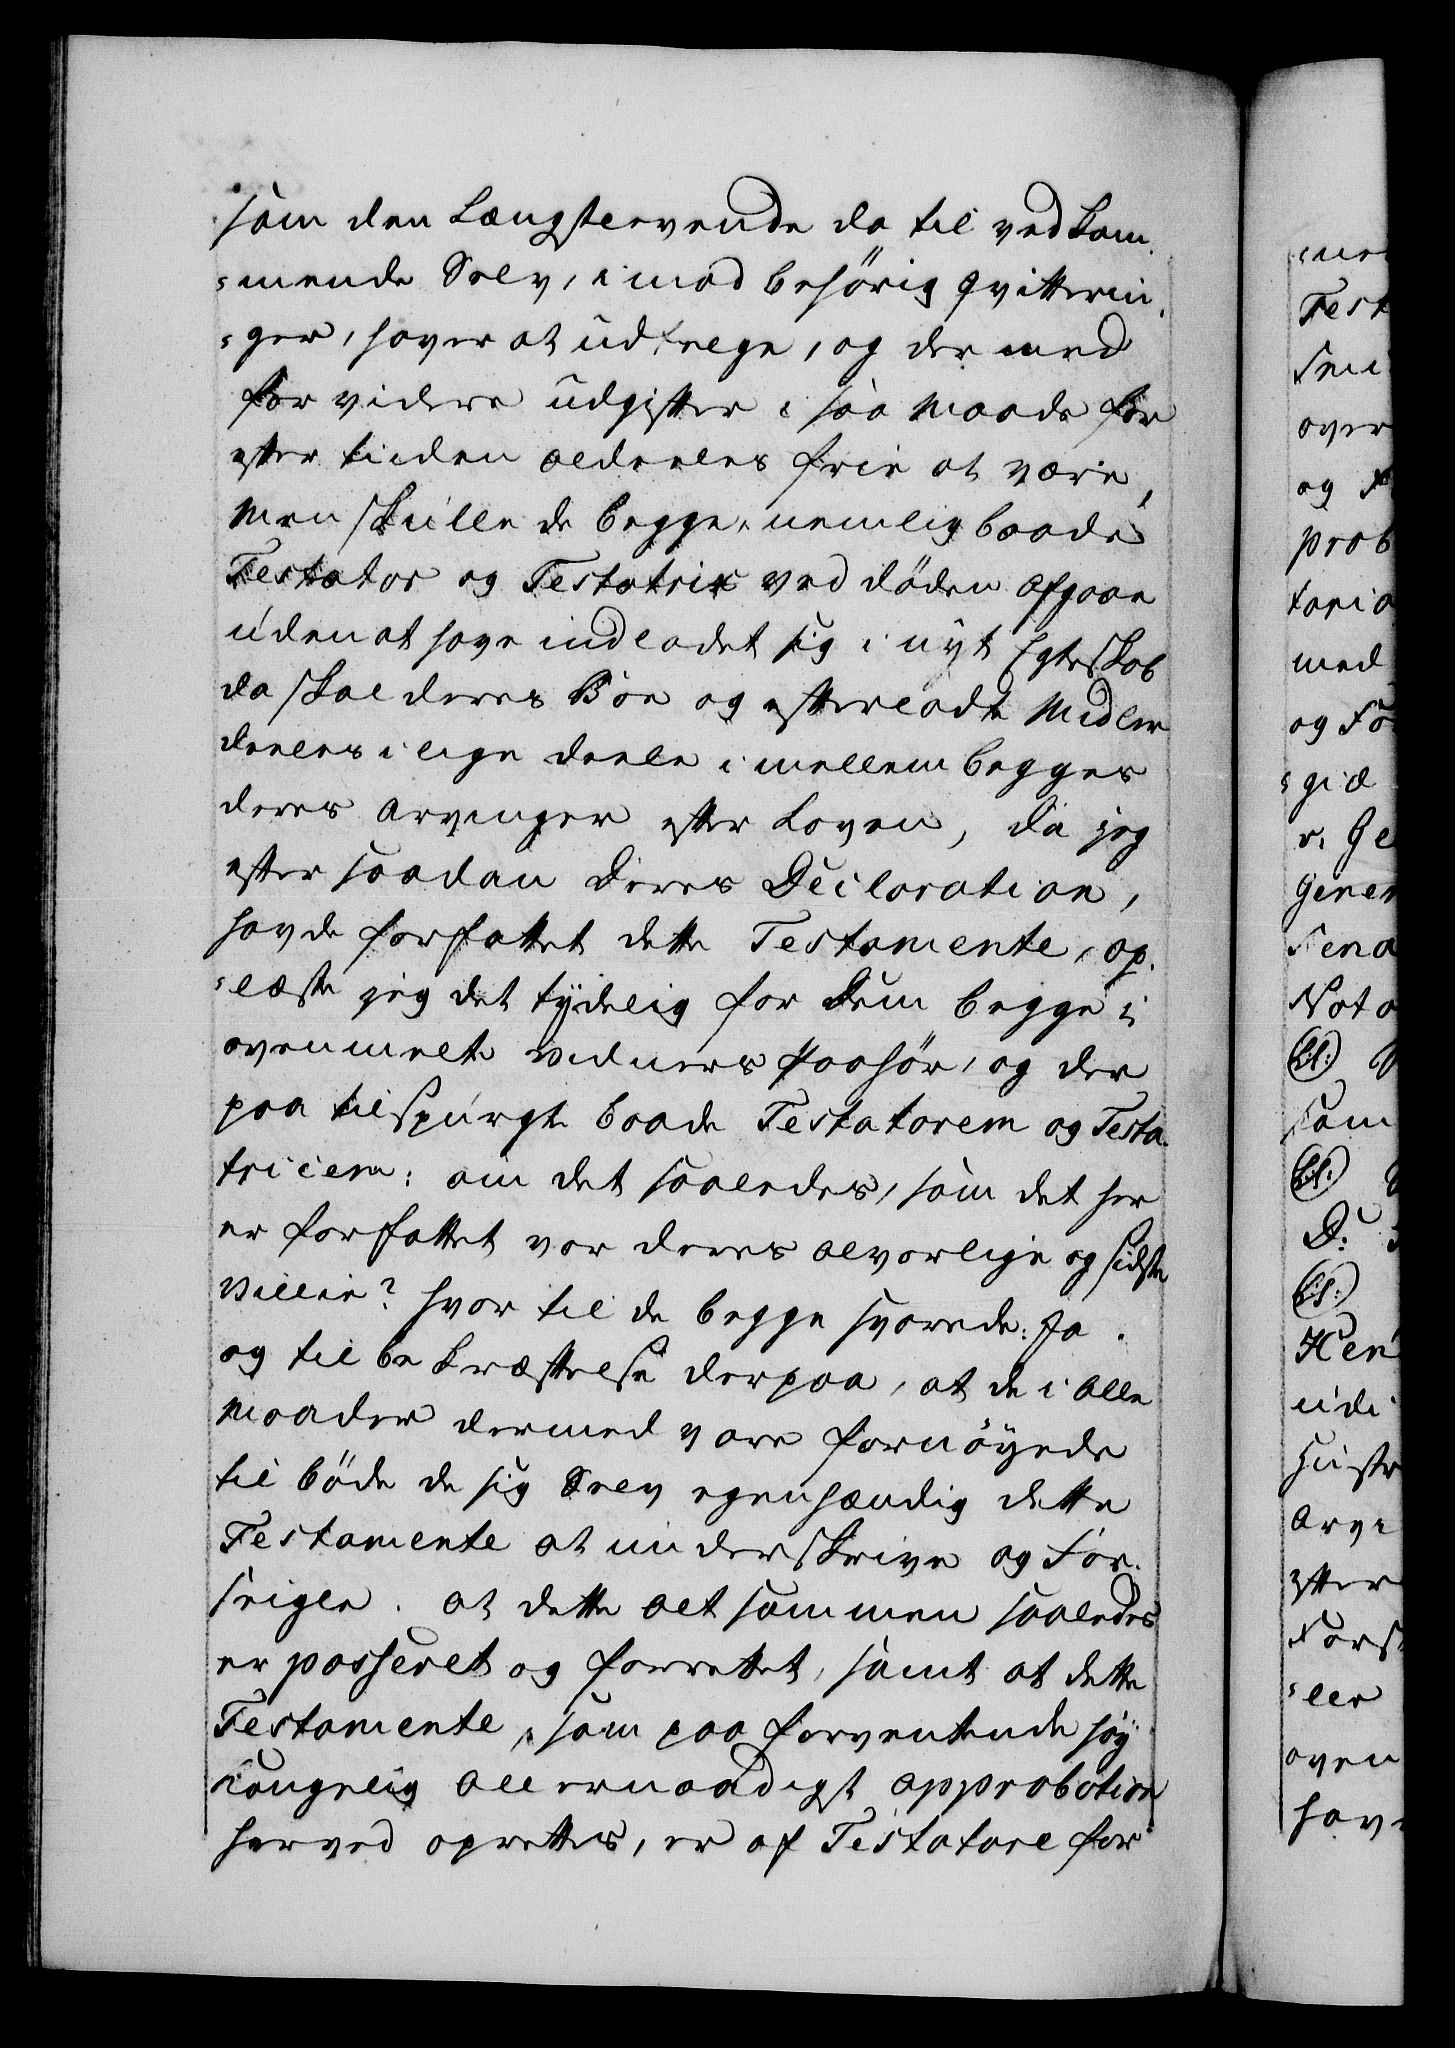 som den Længstlevende da til vedkom¬
=mende Selv, imod behörig qvitterin¬
=ger, haver at udlegge, og dermed
for videre udgifter i saa Maade for
efter tiiden aldeeles frie at være,
Men skulle de begge, nemlig baade
Testator og Testatrix ved döden afgaae
uden at have indladet sig i nyt Egteskab
da skal deres Boe og efterladte Midler
deeles i lige deele imellem begges
deres Arvinger efter Loven, Da jeg
efter saadan deres Declaration,
havde forfattet dette Testamente, op¬
=læste jeg det tydelig for Dem begge i
ovenmelte Vidners Paahör, og der
paa tilspurgte baade Testatorem og Testa¬
tricem: om det saaledes, som det her
er forfattet var deres alvorlige og sidste
Villie? hvortil de begge svarede: Ja.
og til bekræftelse derpaa, at de i alle
Maader dermed vare fornöyede
tilböde de sig Selv egenhændig dette
Testamente at underskrive og For¬
seigle. at dette alt sammen saaledes
er passeret og forrettet, samt at dette
Testamente, som paa forventende höy
Kongelig allernaadigst approbation
herved oprettes, er af Testatore for¬
Test
over
og
prob
taria
med
og For
=giæ
r. Ge
Gener
Fena
Nota
(LS:)
som
(LS:)
D:
(LS:)
Hen
udi
Hustr
Arvi
efter
Fors
=ler
oven
have